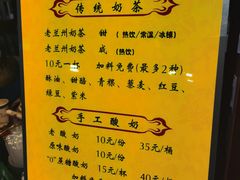 传统奶茶
老兰州奶茶 甜 (热饮/常温/冰镇)
老兰州奶茶 咸 (热饮)
10元一 加料免费(最多2种)
酥油、甜醅、青稞、藜麦、红豆、
绿豆、紫米
手工酸奶
老酸奶 10元/份 35元/桶
原味酸奶 10元/份
"0"蔗糖酸奶 15元/杯 40元/
加料